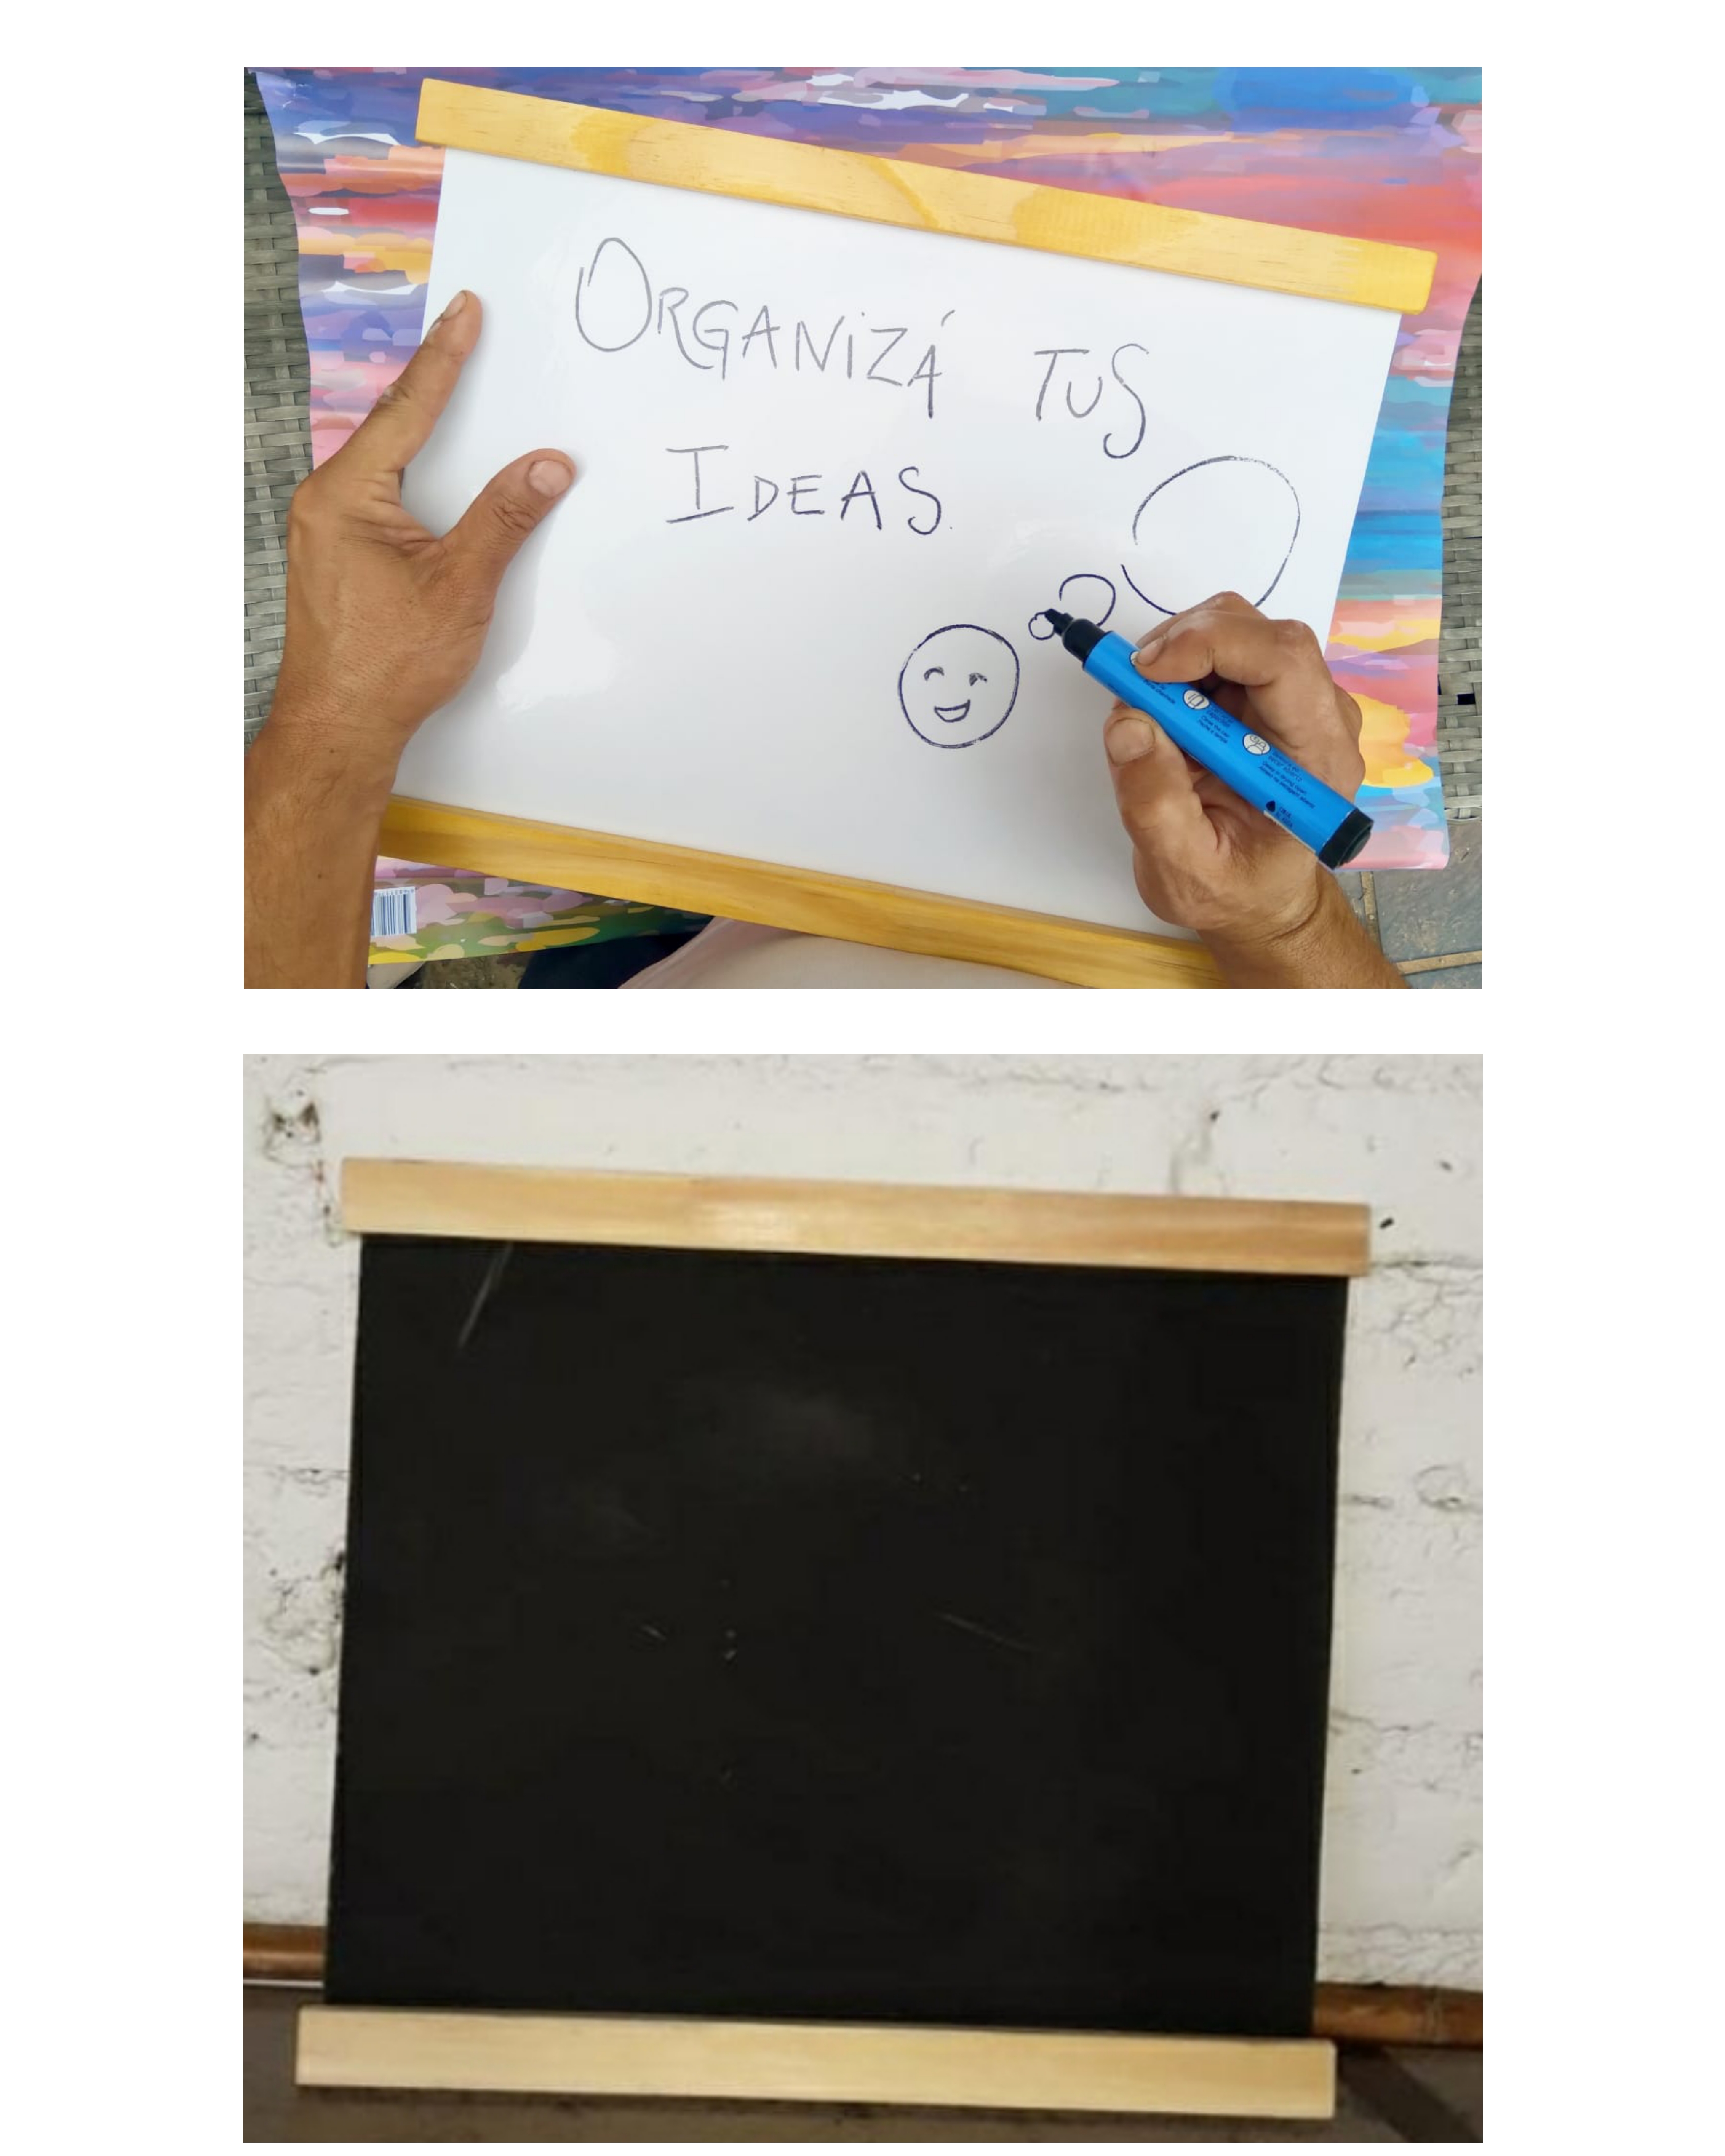 ORGANIZÁ TUS
IDEAS.